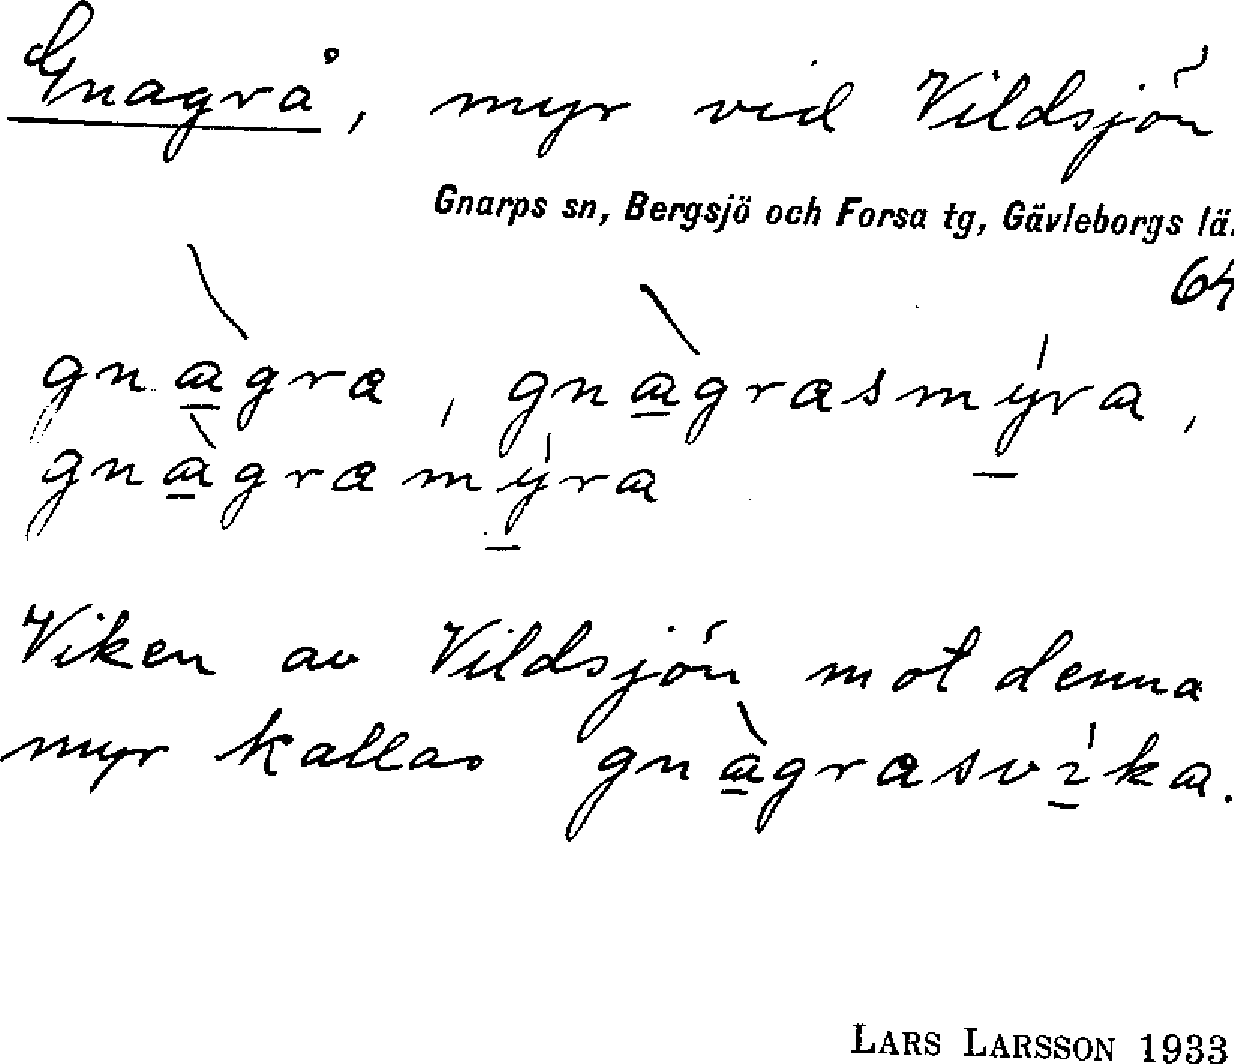 Gnagrå, myr vid Vildsjön
Gnarps sn, Bergsjö och Forsa tg, Gävleborgs lä.
64
gnàgra, gnàgrasmýra,
gnàgramýra
Viken av Vildsjön mot denna
myr kallas gnàgrasvíka.
LARS LARSSON 1933